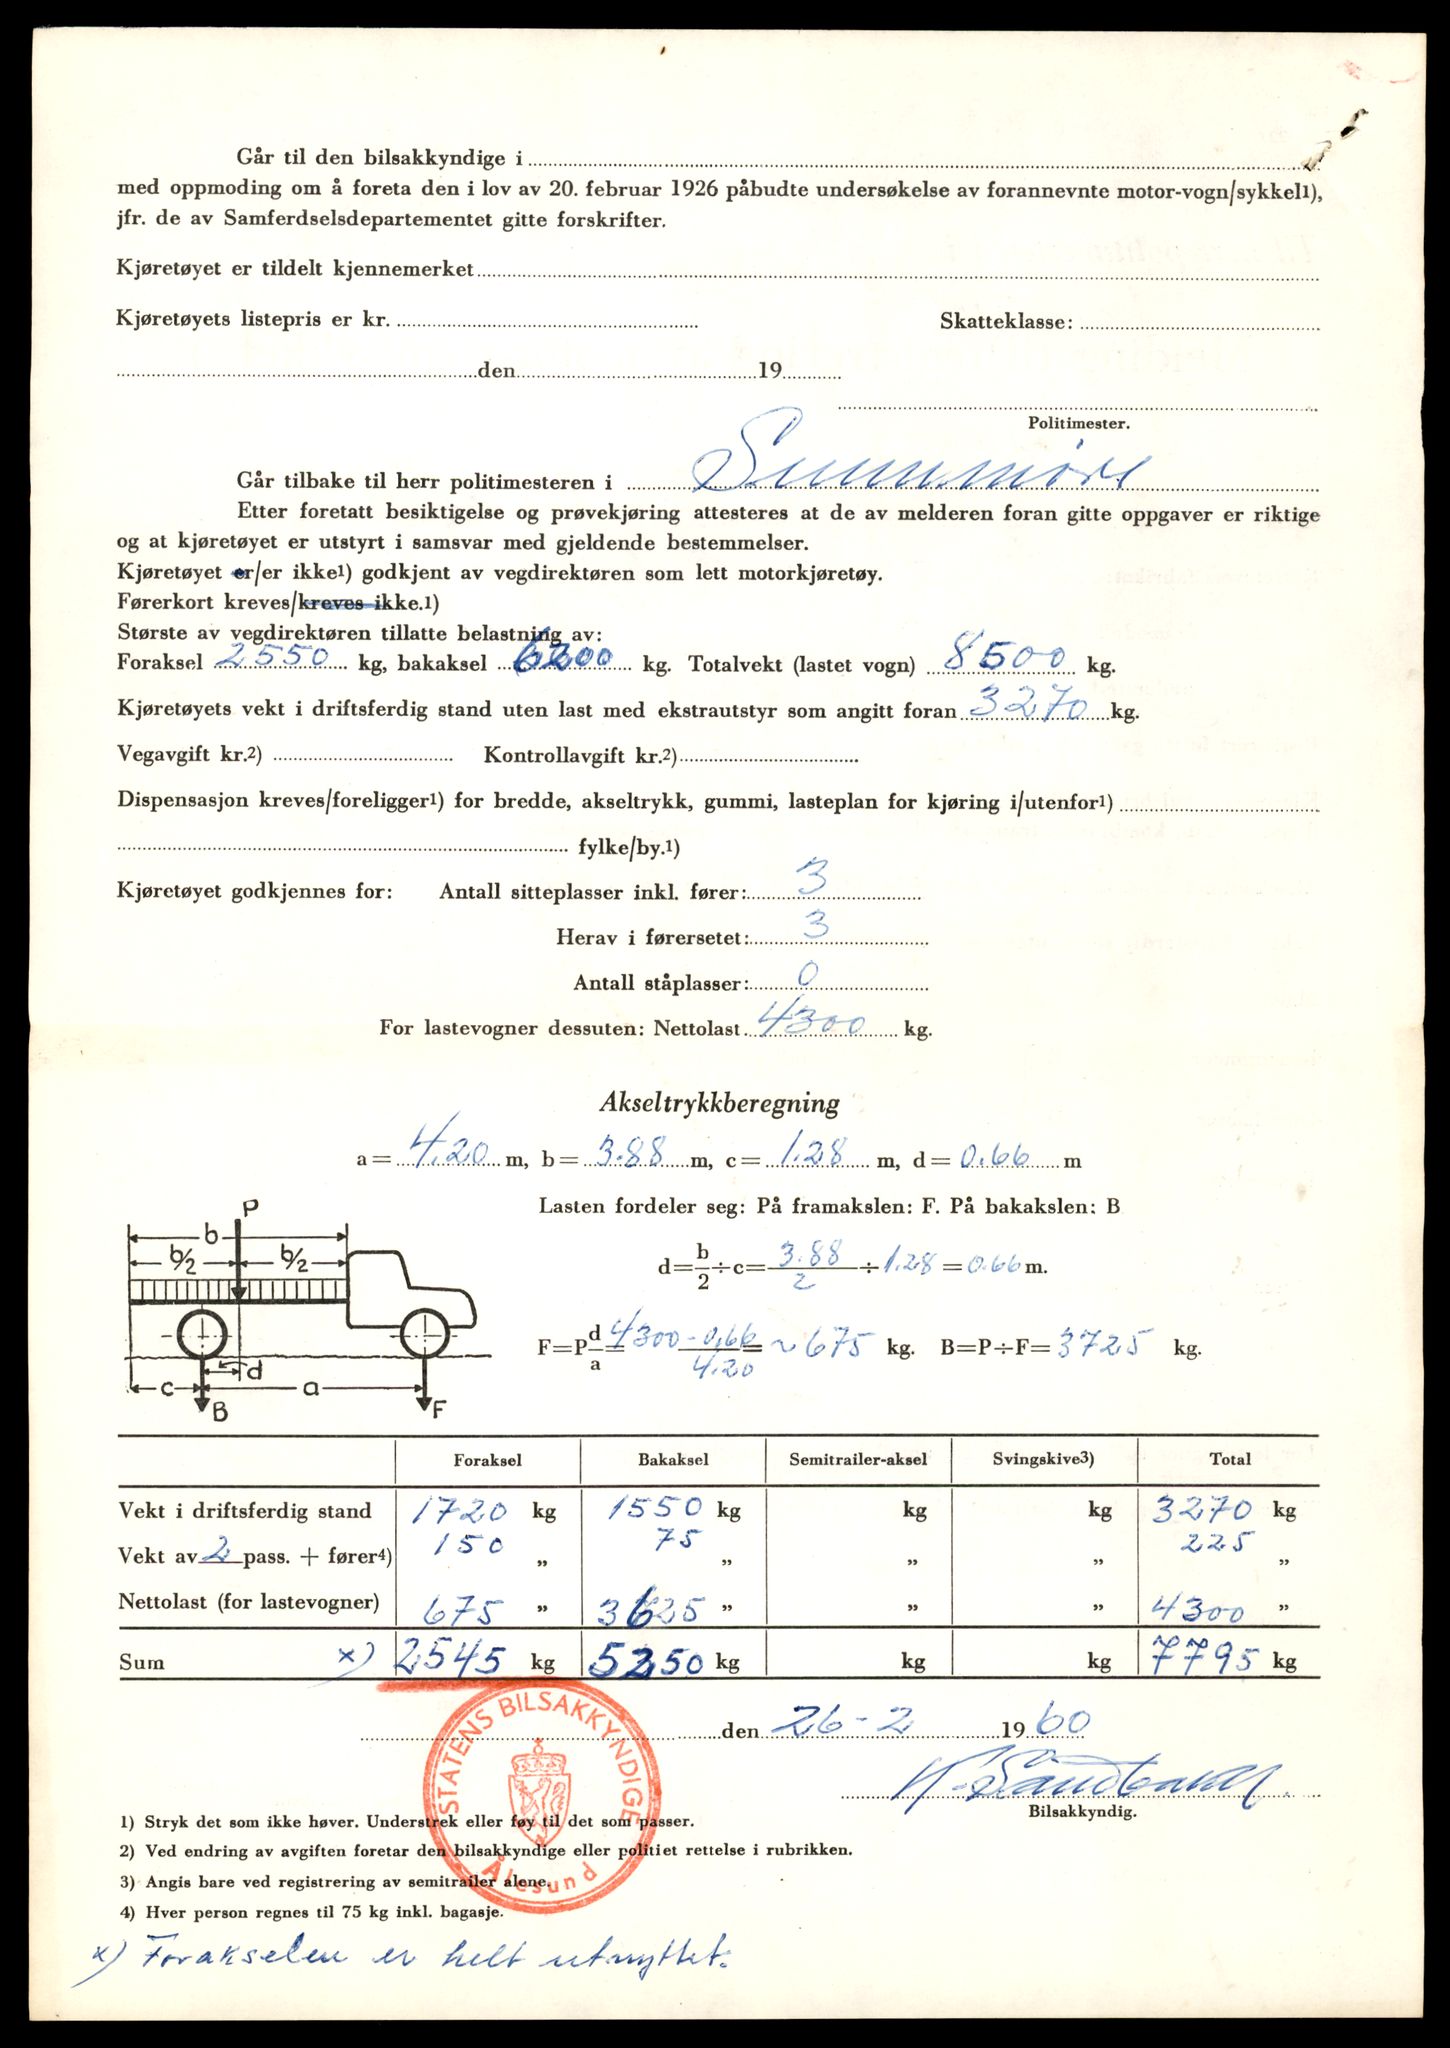 Går til den bilsakkyndige i
med oppmoding om å foreta den i lov av 20. februar 1926 påbudte undersøkelse av forannevnte motor-vogn/sykkel1),
jfr. de av Samferdselsdepartementet gitte forskrifter.
Kjøretøyet er tildelt kjennemerket
Kjøretøyets listepris er kr. Skatteklasse:
den 19
Politimester.
Går tilbake til herr politimesteren i Sunnmøre
Etter foretatt besiktigelse og prøvekjøring attesteres at de av melderen foran gitte oppgaver er riktige
og at kjøretøyet er utstyrt i samsvar med gjeldende bestemmelser.
Kjøretøyet er/er ikke1) godkjent av vegdirektøren som lett motorkjøretøy.
Førerkort kreves/kreves ikke.1)
Største av vegdirektøren tillatte belastning av:
Foraksel 2550 kg, bakaksel 6200 kg. Totalvekt (lastet vogn) 8500 kg.
Kjøretøyets vekt i driftsferdig stand uten last med ekstrautstyr som angitt foran 3270 kg.
Vegavgift kr.2) Kontrollavgift kr.2)
Dispensasjon kreves/foreligger1) for bredde, akseltrykk, gummi, lasteplan for kjøring i/utenfor1)
fylke/by.1)
Kjøretøyet godkjennes for: Antall sitteplasser inkl. fører: 3
Herav i førersetet: 3
Antall ståplasser: 0
For lastevogner dessuten: Nettolast 4300 kg.
Akseltrykkberegning
a = 4.20 m, b = 3.88 m, c = 1.28 m, d = 0.66 m
Lasten fordeler seg: På framakslen: F. På bakakslen: B
P
b
b/2 b/2
c d a
B F
d = b/2 ÷ c = 3.88/2 ÷ 1.28 = 0.66 m.
F = P d/a = 4300 - 0,66/4.20 = ~ 675 kg. B = P ÷ F = 3725 kg.
Foraksel Bakaksel Semitrailer-aksel Svingskive3) Total
Vekt i driftsferdig stand 1720 kg 1550 kg kg kg 3270 kg
Vekt av 2 pass. + fører4) 150 „ 75 „ „ „ 225 „
Nettolast (for lastevogner) 675 „ 3625 „ „ „ 4300 „
Sum x) 2545 kg 5250 kg kg kg 7795 kg
den 26-2 1960
STATENS BILSAKKYNDIGE
Ålesund
Bilsakkyndig.
1) Stryk det som ikke høver. Understrek eller føy til det som passer.
2) Ved endring av avgiften foretar den bilsakkyndige eller politiet rettelse i rubrikken.
3) Angis bare ved registrering av semitrailer alene.
4) Hver person regnes til 75 kg inkl. bagasje.
x) Forakselen er helt utnyttet.